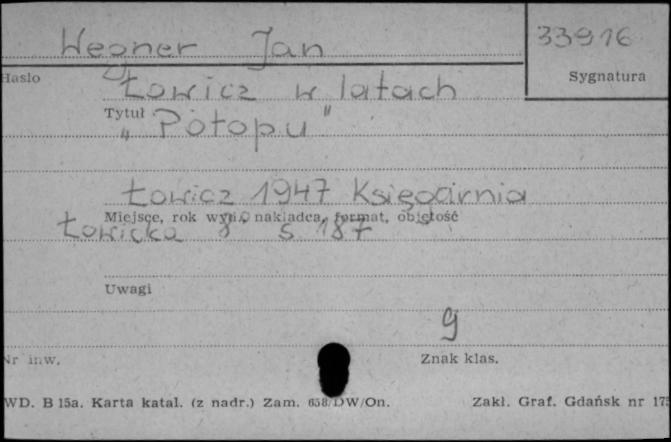 Wegner Jan
33916
Hasło
Sygnatura
Łowicz w latach
Tytuł
„Potopu"
Łowicz 1947 Księgarnia
Miejsce, rok wyd., nakładca, format, objętość
Łowicka 8° s 187
Uwagi
9
Nr inw.
Znak klas.
WD. B 15a. Karta katal. (z nadr.) Zam. 658/DW/On.
Zakł. Graf. Gdańsk nr 175